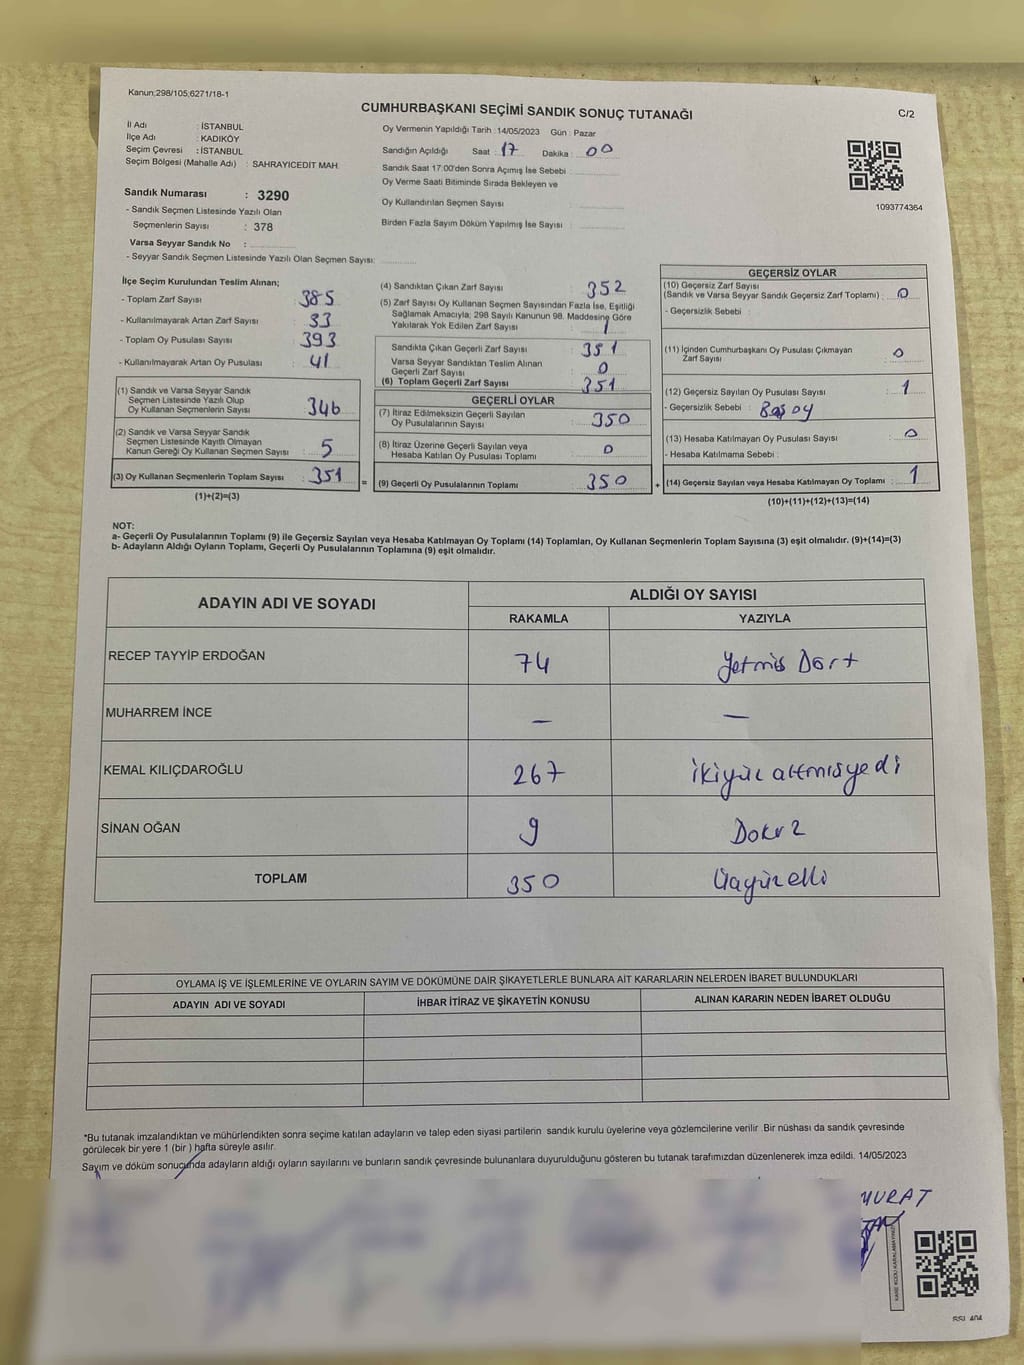 Kanun;298/105;6271/18-1
CUMHURBAŞKANI SEÇİMİ SANDIK SONUÇ TUTANAĞI
C/2
İl Adı : İSTANBUL
İlçe Adı : KADIKÖY
Seçim Çevresi : İSTANBUL
Seçim Bölgesi (Mahalle Adı) : SAHRAYICEDİT MAH.
Oy Vermenin Yapıldığı Tarih : 14/05/2023 Gün : Pazar
Sandığın Açıldığı Saat : 17 Dakika : 00
Sandık Saat 17:00'den Sonra Açımış İse Sebebi :
Oy Verme Saati Bitiminde Sırada Bekleyen ve
Oy Kullandırılan Seçmen Sayısı
Birden Fazla Sayım Döküm Yapılmış İse Sayısı :
1093774364
Sandık Numarası : 3290
- Sandık Seçmen Listesinde Yazılı Olan
Seçmenlerin Sayısı : 378
Varsa Seyyar Sandık No :
- Seyyar Sandık Seçmen Listesinde Yazılı Olan Seçmen Sayısı:
İlçe Seçim Kurulundan Teslim Alınan;
- Toplam Zarf Sayısı : 385
- Kullanılmayarak Artan Zarf Sayısı : 33
- Toplam Oy Pusulası Sayısı : 393
- Kullanılmayarak Artan Oy Pusulası : 41
(1) Sandık ve Varsa Seyyar Sandık
Seçmen Listesinde Yazılı Olup
Oy Kullanan Seçmenlerin Sayısı : 346
(2) Sandık ve Varsa Seyyar Sandık
Seçmen Listesinde Kayıtlı Olmayan
Kanun Gereği Oy Kullanan Seçmen Sayısı : 5
(3) Oy Kullanan Seçmenlerin Toplam Sayısı : 351
(1)+(2)=(3)
(4) Sandıktan Çıkan Zarf Sayısı : 352
(5) Zarf Sayısı Oy Kullanan Seçmen Sayısından Fazla İse, Eşitliği
Sağlamak Amacıyla; 298 Sayılı Kanunun 98. Maddesine Göre
Yakılarak Yok Edilen Zarf Sayısı : 1
Sandıkta Çıkan Geçerli Zarf Sayısı : 351
Varsa Seyyar Sandıktan Teslim Alınan
Geçerli Zarf Sayısı : 0
(6) Toplam Geçerli Zarf Sayısı : 351
GEÇERLİ OYLAR
(7) İtiraz Edilmeksizin Geçerli Sayılan
Oy Pusulalarının Sayısı : 350
(8) İtiraz Üzerine Geçerli Sayılan veya
Hesaba Katılan Oy Pusulası Toplamı : 0
(9) Geçerli Oy Pusulalarının Toplamı : 350
GEÇERSİZ OYLAR
(10) Geçersiz Zarf Sayısı
(Sandık ve Varsa Seyyar Sandık Geçersiz Zarf Toplamı) : 0
- Geçersizlik Sebebi :
(11) İçinden Cumhurbaşkanı Oy Pusulası Çıkmayan
Zarf Sayısı : 0
(12) Geçersiz Sayılan Oy Pusulası Sayısı : 1
- Geçersizlik Sebebi : Boş oy
(13) Hesaba Katılmayan Oy Pusulası Sayısı : 0
- Hesaba Katılmama Sebebi :
(14) Geçersiz Sayılan veya Hesaba Katılmayan Oy Toplamı : 1
(10)+(11)+(12)+(13)=(14)
NOT:
a- Geçerli Oy Pusulalarının Toplamı (9) ile Geçersiz Sayılan veya Hesaba Katılmayan Oy Toplamı (14) Toplamları, Oy Kullanan Seçmenlerin Toplam Sayısına (3) eşit olmalıdır. (9)+(14)=(3)
b- Adayların Aldığı Oyların Toplamı, Geçerli Oy Pusulalarının Toplamına (9) eşit olmalıdır.
ADAYIN ADI VE SOYADI
ALDIĞI OY SAYISI
RAKAMLA YAZIYLA
RECEP TAYYİP ERDOĞAN 74 Yetmiş Dört
MUHARREM İNCE — —
KEMAL KILIÇDAROĞLU 267 ikiyüz altmışyedi
SİNAN OĞAN 9 Dokuz
TOPLAM 350 Üçyüzelli
OYLAMA İŞ VE İŞLEMLERİNE VE OYLARIN SAYIM VE DÖKÜMÜNE DAİR ŞİKAYETLERLE BUNLARA AİT KARARLARIN NELERDEN İBARET BULUNDUKLARI
ADAYIN ADI VE SOYADI İHBAR İTİRAZ VE ŞİKAYETİN KONUSU ALINAN KARARIN NEDEN İBARET OLDUĞU
*Bu tutanak imzalandıktan ve mühürlendikten sonra seçime katılan adayların ve talep eden siyasi partilerin sandık kurulu üyelerine veya gözlemcilerine verilir .Bir nüshası da sandık çevresinde
görülecek bir yere 1 (bir ) hafta süreyle asılır.
Sayım ve döküm sonucunda adayların aldığı oyların sayılarını ve bunların sandık çevresinde bulunanlara duyurulduğunu gösteren bu tutanak tarafımızdan düzenlenerek imza edildi. 14/05/2023
MURAT